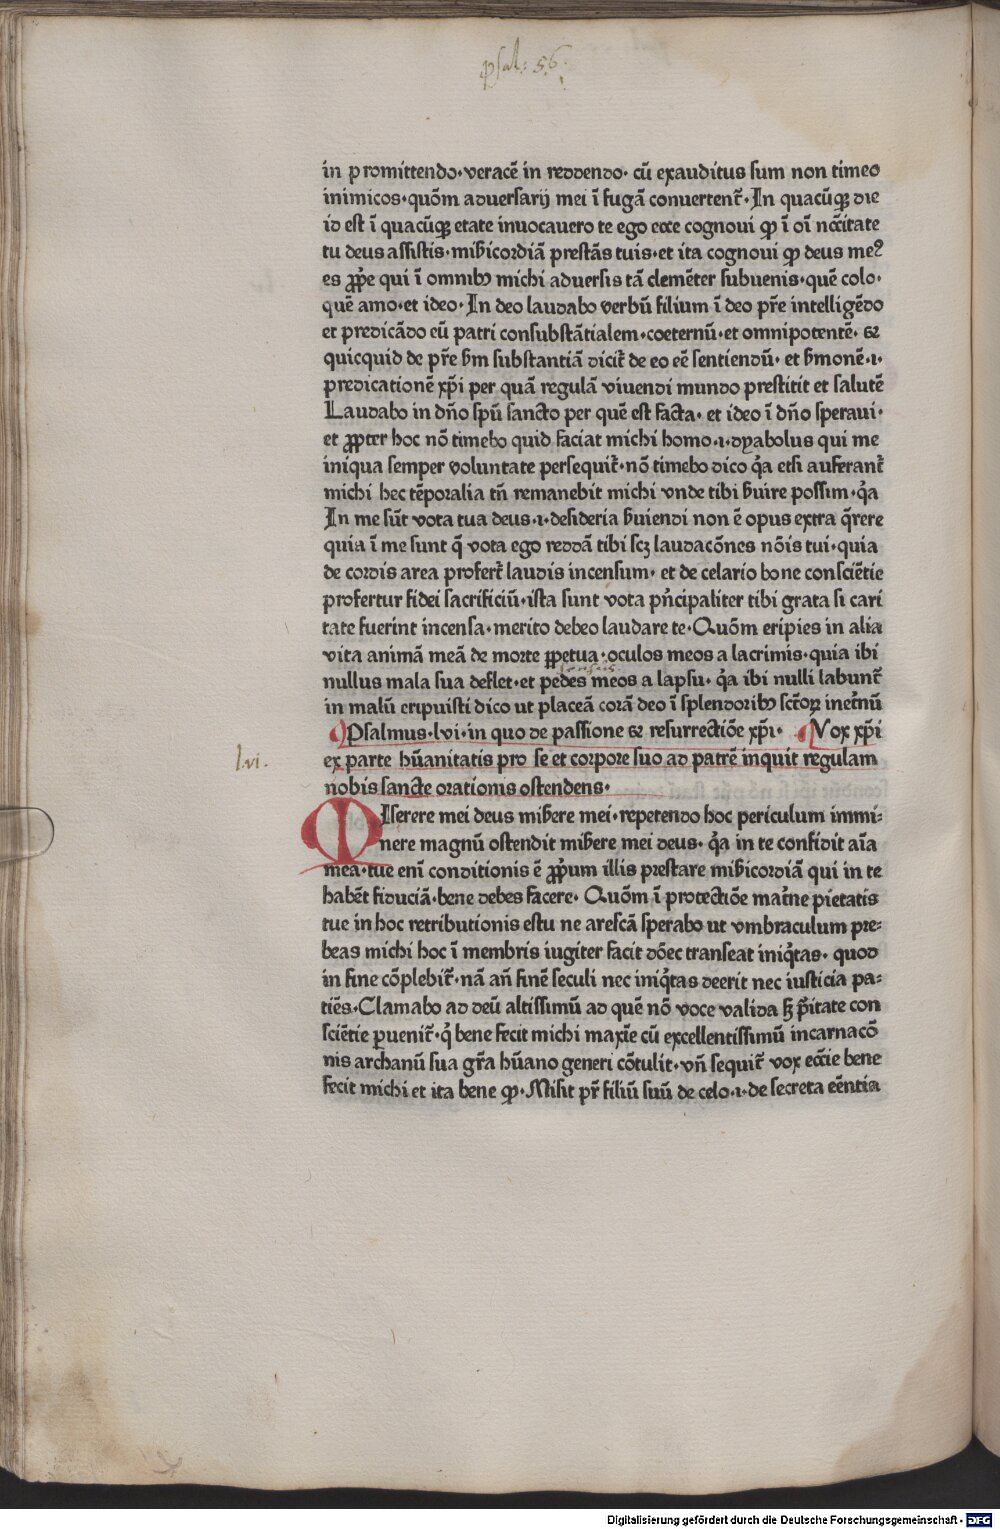 psal: 56.
in promittendo·veracē in reddendo· cū exauditus sum non timeo
inimicos·quōm aduersarij mei ī fugā conuertent̄·In quacūqꝫ die
id est ī quacūqꝫ etate inuocauero te ego ecce cognoui ꝙ ī oī nc̄citate
tu deus assistis·mīsicordiā prestās tuis·et ita cognoui ꝙ deus meꝰ
es ꝓpe qui ī omnibꝰ michi aduersis tā clemēter subuenis·quē colo·
quē amo·et ideo·In deo laudabo verbū filium ī deo pr̄e intelligēdo
et predicādo cū patri consubstātialem·coeternū·et omnipotentē· &
quicquid de pr̄e ẜm substantiā dicit̄ de eo eē sentiendū· et ẜmonē·i·
predicationē xp̄i per quā regulā viuendi mundo prestitit et salutē
Laudabo in dn̄o spū sancto per quē est facta· et ideo ī dn̄o speraui·
et ꝓpter hoc nō timebo quid faciat michi homo·i·dyabolus qui me
iniqua semper voluntate persequit̄·nō timebo dico q̄a etsi auferant̄
michi hec tēporalia tn̄ remanebit michi vnde tibi ẜuire possim·q̄a
In me sūt vota tua deus·i·desideria ẜuiendi non ē opus extra q̄rere
quia ī me sunt q̄ vota ego reddā tibi scꝫ laudacōnes nōis tui·quia
de cordis area profert̄ laudis incensum· et de celario bone consciētie
profertur fidei sacrificiū·ista sunt vota pn̄cipaliter tibi grata si cari
tate fuerint incensa·merito debeo laudare te·Quōm eripies in alia
vita animā meā de morte ꝑpetua·oculos meos a lacrimis·quia ibi
nullus mala sua deflet·et pedes meos a lapsu· q̄a ibi nulli labunt̄
in malū eripuisti dico ut placeā corā deo ī splendoribꝰ sctōꝝ inet̄nū
Psalmus·lvi·in quo de passione & resurrectiōe xp̄i· Vox xp̄i
lvi.
ex parte hūanitatis pro se et corpore suo ad patrē inquit regulam
nobis sancte orationis ostendens·
MIserere mei deus mīsere mei·repetendo hoc periculum immi⸗
nere magnū ostendit mīsere mei deus· q̄a in te confidit aīa
mea·tue enī conditionis ē ꝓpum illis prestare mīsicordiā qui in te
habēt fiduciā·bene debes facere· Quōm ī protectiōe mat̄ne pietatis
tue in hoc retributionis estu ne arescā sperabo ut vmbraculum pre⸗
beas michi hoc ī membris iugiter facit dōec transeat iniq̄tas· quod
in fine cōplebit̄·nā an̄ finē seculi nec iniq̄tas deerit nec iusticia pa⸗
tiēs·Clamabo ad deū altissimū ad quē nō voce valida sꝫ p̄itate con
sciētie ꝑuenit̄·q̄ bene fecit michi maxīe cū excellentissimū incarnacō
nis archanū sua gr̄a hūano generi cōtulit·vn̄ sequit̄ vox ecc̄ie bene
fecit michi et ita bene ꝙ·Misit pr̄ filiū suū de celo·i·de secreta eēntia